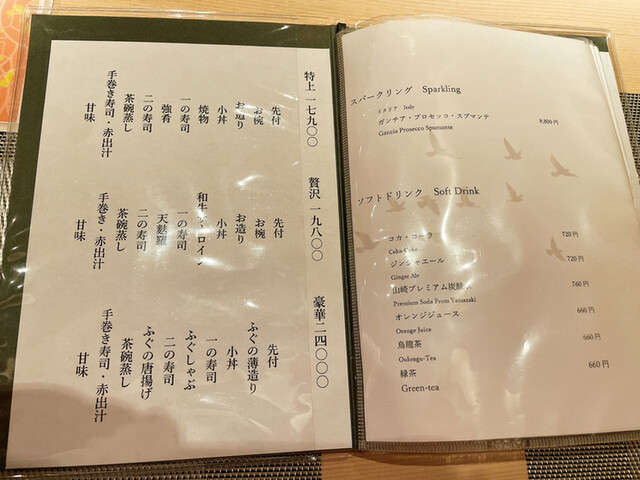 特上 一七九〇〇
先付
お椀
お造り
小丼
焼物
強肴
一の寿司
二の寿司
茶碗蒸し
手巻き寿司・赤出汁
甘味
贅沢 一九八〇〇
先付
お椀
お造り
小丼
和牛サーロイン
一の寿司
天麩羅
二の寿司
茶碗蒸し
手巻き・赤出汁
甘味
豪華 二四〇〇〇
先付
ふぐの薄造り
小丼
一の寿司
ふぐしゃぶ
二の寿司
ふぐの唐揚げ
茶碗蒸し
手巻き寿司・赤出汁
甘味
スパークリング Sparkling
イタリア Italy
ガンチア・プロセッコ・スプマンテ 8,800円
Gancia Prosecco Spumante
ソフトドリンク Soft Drink
コカ・コーラ 720円
Coka-Coke
ジンジャエール 720円
Ginger Ale
山崎プレミアム炭酸水 760円
Premium Soda From Yamazaki
オレンジジュース 660円
Orenge Juice
烏龍茶 660円
Oolongu-Tea
緑茶 660円
Green-tea